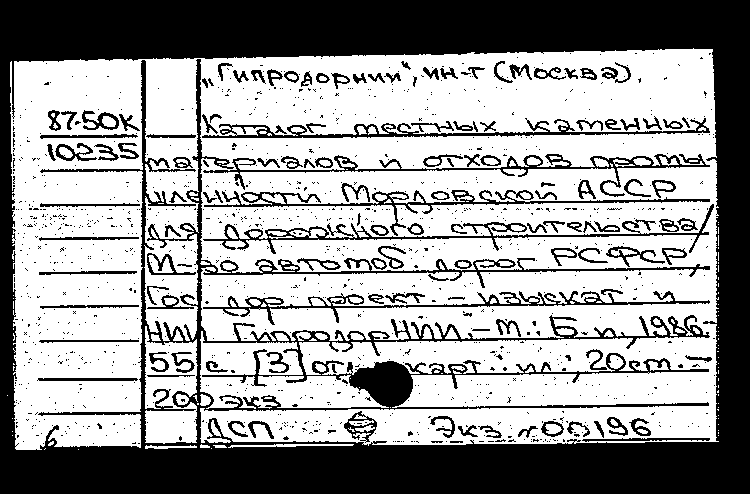 „Гипродорнии", ин-т (Москва).
87-50К Каталог местных каменных
10235 материалов и отходов промы-
шленности Мордовской АССР
для дорожного строительства /
М-во автомоб. дорог РСФСР,
Гос. дор. проект. - изыскат. и
НИИ ГипродорНИИ. - М.: Б. и., 1986. -
55 с., [3] отд. карт. : ил.; 20 см. -
200 экз.
ДСП. Экз. №00196
6